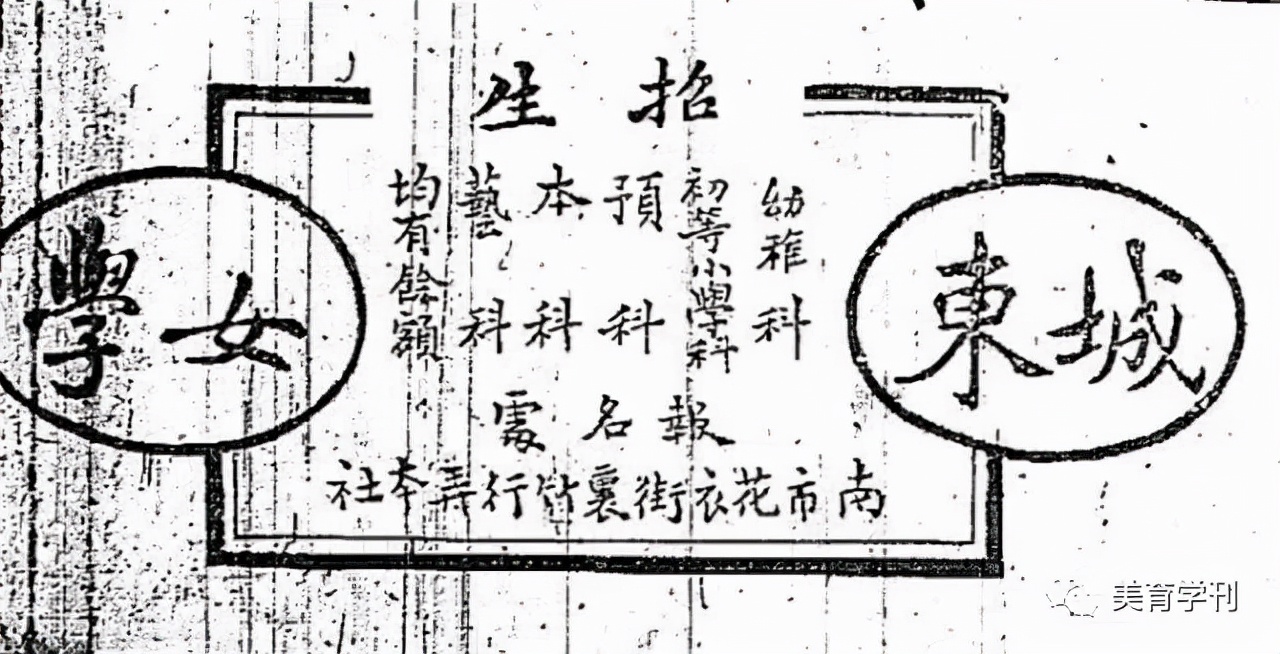 城東
女學
招生
幼稚科
初等小學科
預科
本科
藝科
均有餘額
報名處
南市花衣街裏竹行弄本社
美育学刊